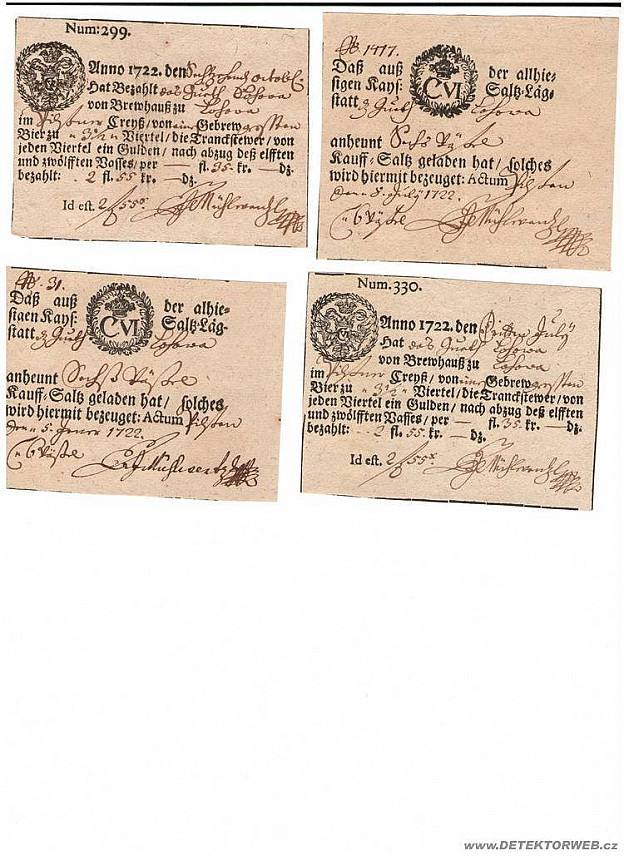 Num: 299.
Anno 1722. den October
Hat Bezahlt das Guth Lohova
von Brewhauß zu Lohova
im Pilsner Creyß / von einer Gebrew
Bier zu 3½ Viertel / die Tranckstewer / von
jeden Viertel ein Gulden / nach abzug deß elfften
und zwölfften Vasses / per — fl. 35. kr. — dz.
bezahlt: 2 fl. 55 kr. — dz.
Id est. 2/55
No. 1477.
Daß auß der allhie-
sigen Kays: CVI Saltz-Läg-
statt Guth Lohova
anheunt Sechs
Kauff-Saltz geladen hat / solches
wird hiermit bezeuget: Actum Pilsen
den 5. July 1722.
No. 31.
Daß auß der alhie-
sigen Kays: CVI Saltz-Läg-
statt Guth Lohova
anheunt Sechs
Kauff-Saltz geladen hat / solches
wird hiermit bezeuget: Actum Pilsen
den 5. 1722.
Num. 330.
Anno 1722. den July
Hat das Guth Lohova
von Brewhauß zu Lohova
im Pilsner Creyß / von einer Gebrew
Bier zu 3½ Viertel / die Tranckstewer / von
jeden Viertel ein Gulden / nach abzug deß elfften
und zwölfften Vasses / per — fl. 35. kr. — dz.
bezahlt: 2 fl. 55. kr. — dz.
Id est. 2/55
www.DETEKTORWEB.cz